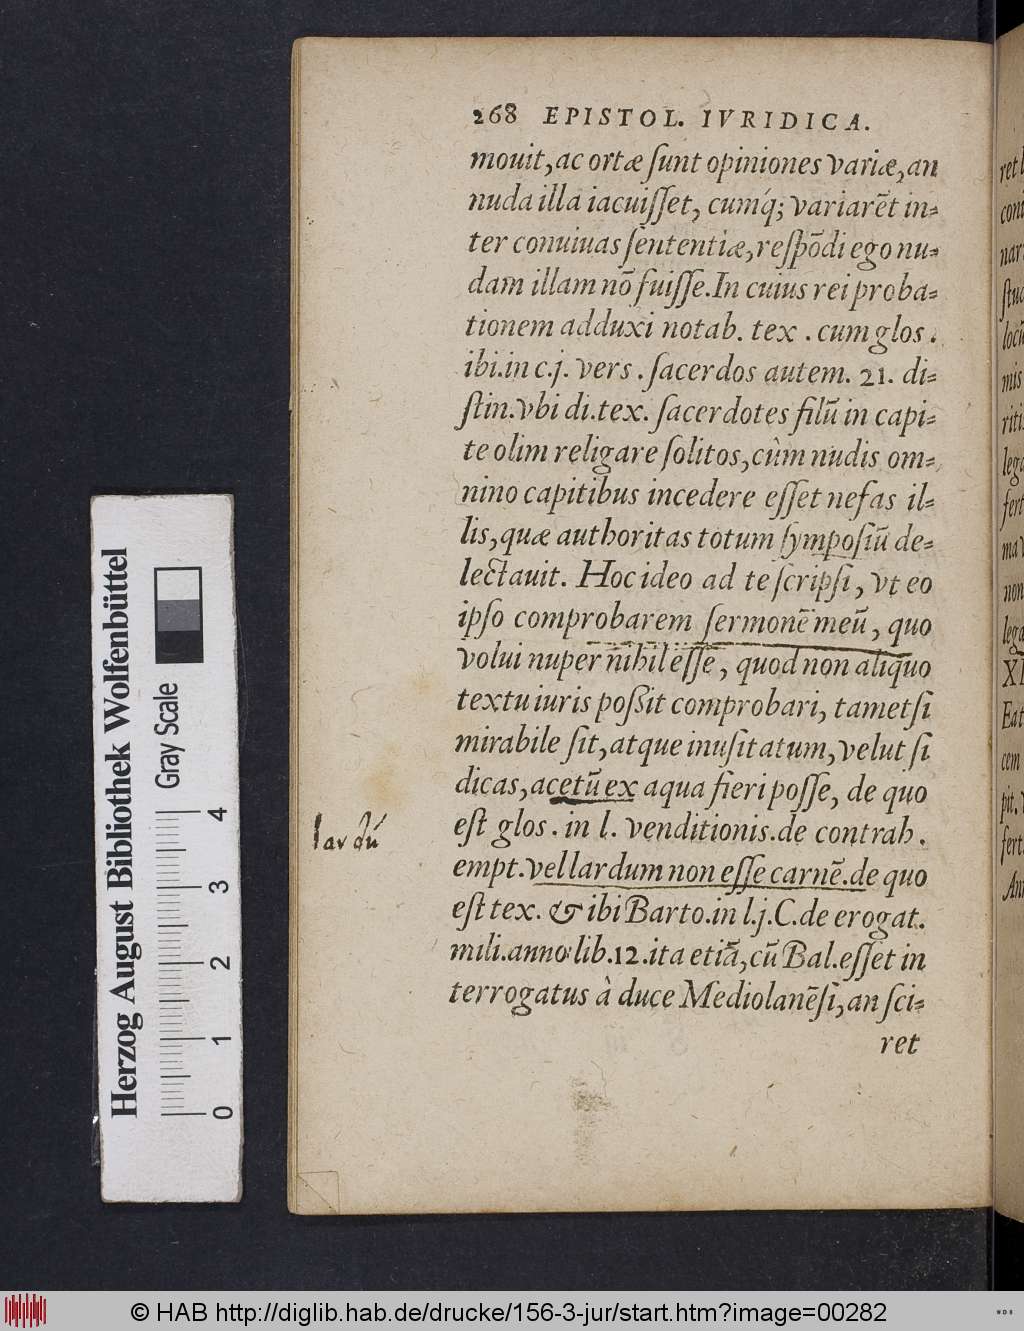 268 EPISTOL. IVRIDICA.
mouit, ac ortæ ſunt opiniones variæ, an
nuda illa iacuiſſet, cumq́; variarẽt in=
ter conuiuas ſententiæ, reſpõdi ego nu=
dam illam nõ fuiſſe. In cuius rei proba=
tionem adduxi notab. tex. cum glos.
ibi. in c. j. vers. ſacerdos autem. 21. di=
ſtin. vbi di. tex. ſacerdotes filũ in capi=
te olim religare ſolitos, cùm nudis om=
nino capitibus incedere eſſet nefas il=
lis, quæ authoritas totum ſympoſiũ de=
lectauit. Hoc ideo ad te ſcripſi, vt eo
ipſo comprobarem ſermonẽ meũ, quo
volui nuper nihil eſſe, quod non aliquo
textu iuris poßit comprobari, tametſi
mirabile ſit, atque inuſitatum, velut ſi
dicas, acetũ ex aqua fieri poſſe, de quo
eſt glos. in l. venditionis. de contrah.
empt. vel lardum non eſſe carnẽ. de quo
eſt tex. & ibi Barto. in l. j. C. de erogat.
mili. anno. lib. 12. ita etiã, cũ Bal. eſſet in
terrogatus à duce Mediolanẽſi, an ſci=
ret
lardũ
Herzog August Bibliothek Wolfenbüttel
Gray Scale
0 1 2 3 4
ret
ſtud
mis
ritis
lega
fert
ma
non
lega
Eat
cem
pit.
fert
© HAB http://diglib.hab.de/drucke/156-3-jur/start.htm?image=00282